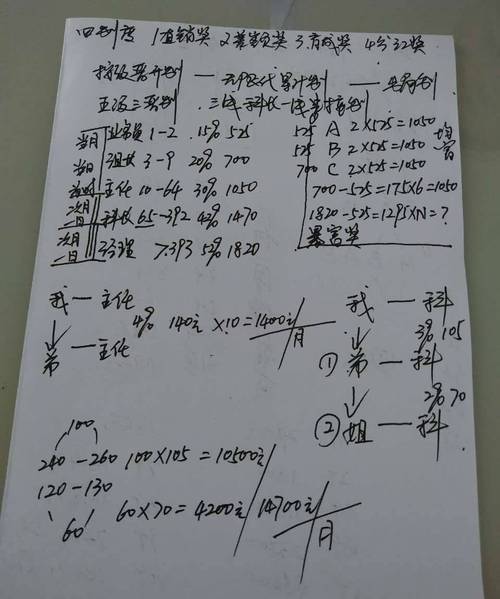 四制度 1直销奖 2差额奖 3.育成奖 4分红奖
晋升制 — 无限代累计制 —
五级三阶制 三线科长 一线
当月 业务员 1-2 15% 525
当日 组长 3-9 20% 700
主任 10-64 30% 1050
次月一日 科长 65-392 42% 1470
次月一日 经理 ≥393 52% 1820
525 A 2×525=1050
525 B 2×525=1050
700 C 2×525=1050
700-525=175×6=1050
1820-525=1295×N=?
暴富奖
均富
我 — 主任
4% 140元×10=1400元/月
弟 — 主任
我 — 科
3% 105
① 弟 — 科
2% 70
② 姐 — 科
100
240-260 100×105=10500元
120-130
60 60×70=4200元
14700元/月